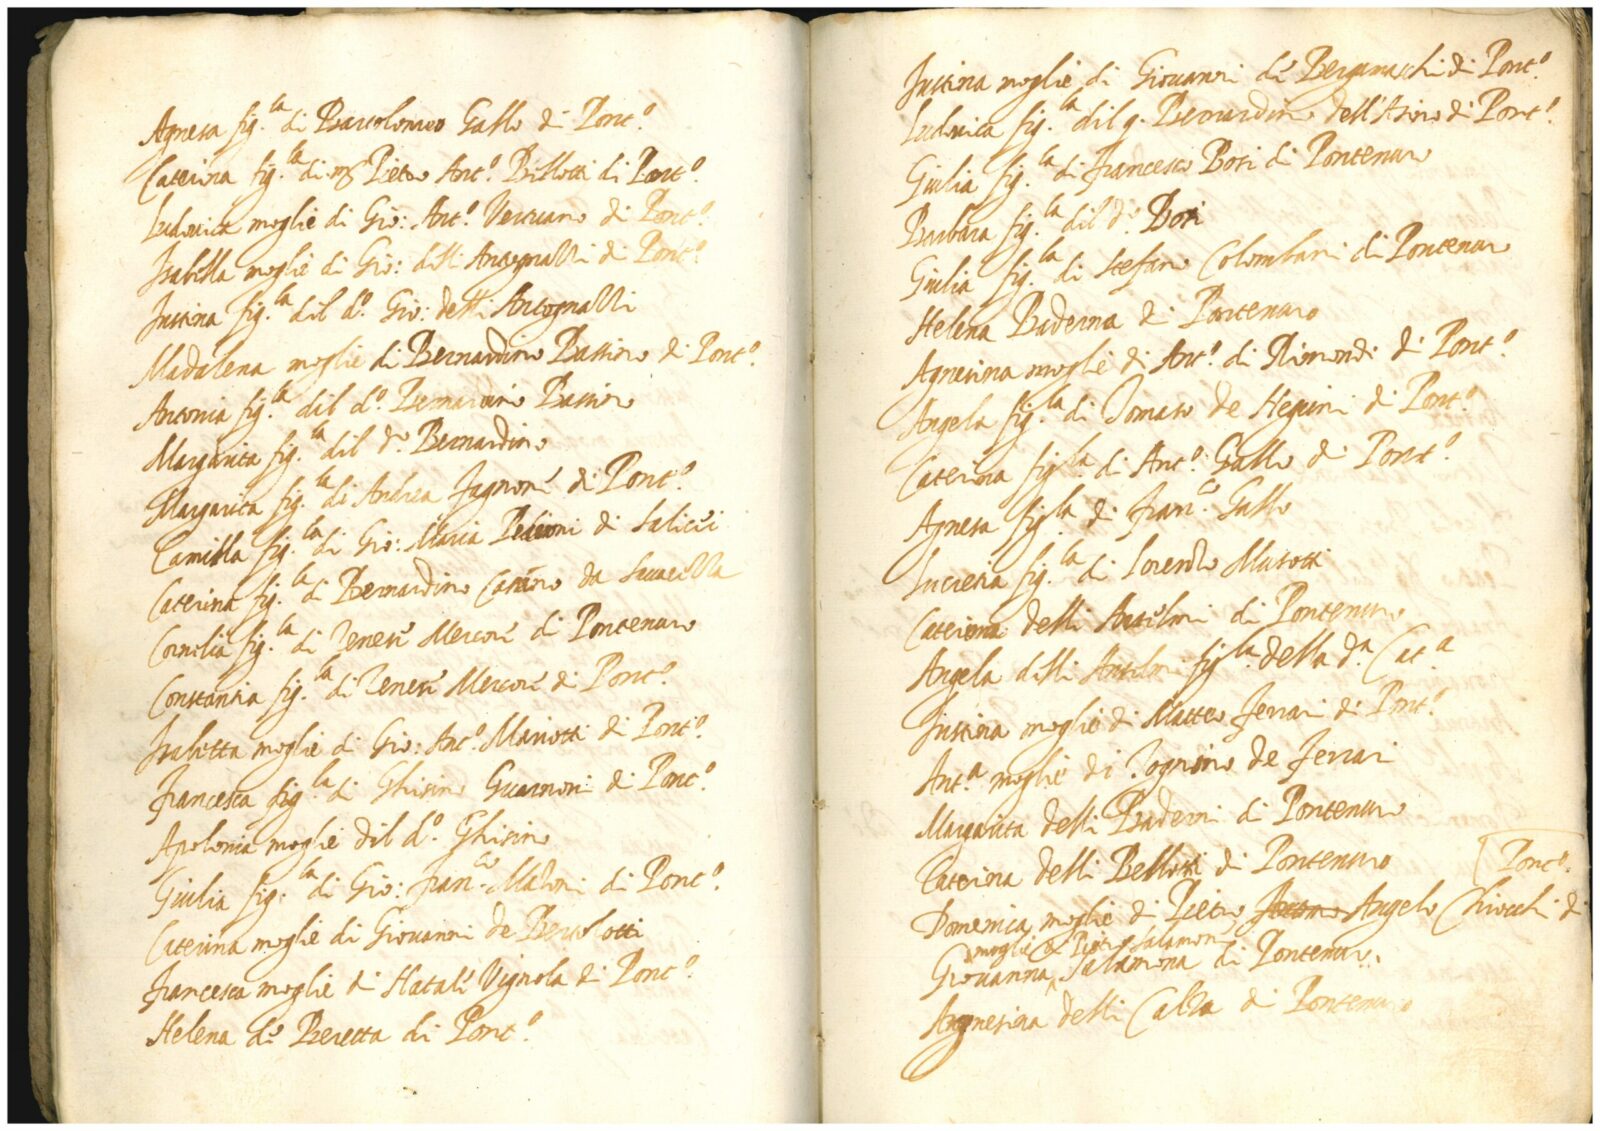 Agnesa fig.la di Bartolomeo Gallo di Pont.o
Caterina fig.la di mg Pietro Ant.o Billotti di Pont.o
Ludovica moglie di Gio: Ant.o Veruano di Pont.o
Isabella moglie di Gio: delli Antognalli di Pont.o
Justina fig.la dil d.o Gio: delli Antognalli
Madalena moglie di Bernardino Bassino di Pont.o
Antonia fig.la dil d.o Bernardino Bassino
Margarita fig.la dil d.o Bernardino
Margarita fig.la di Andrea Fagnoni di Pont.o
Camilla fig.la di Gio: Maria di
Caterina fig.la di Bernardino da
Cornelia fig.la di Mercori di Pontenuro
Constantia fig.la di Mercori di Pont.o
Isabetta moglie di Gio: Ant.o Mariotti di Pont.o
Francesca fig.la di Ghisino Guarnori di Pont.o
Apolonia moglie dil d.o Ghisino
Giulia fig.la di Gio: Fran.co Maloni di Pont.o
Caterina moglie di Giovanni de Bertolotti
Francesca moglie di Natalè Vignola di Pont.o
Helena de Beretta di Pont.o
Justina moglie di Giovanni de Bergamaschi di Pont.o
Ludovica fig.la dil q. Bernardino dell'Asino di Pont.o
Giulia fig.la di Francesco Bosi di Pontenuro
Barbara fig.la dil d.o Bosi
Giulia fig.la di Stefano Colombani di Pontenuro
Helena Baderna di Pontenuro
Agnesina moglie di Ant.o di Rimondi di Pont.o
Angela fig.la di Tomaso de di Pont.o
Caterina fig.la di Ant.o Gallo di Pont.o
Agnesa fig.la di Fran.co Gallo
Lucretia fig.la di Lorenzo Musotti
Caterina delli Anselmi di Pontenuro
Angela delli Anselmi fig.la della d.a Cat.a
Justina moglie di Matteo Ferrari di Pont.o
Ant.a moglie di Tognino de Ferrari
Margarita delli Baderni di Pontenuro
Caterina delli Bellotti di Pontenuro
Pont.o
Domenica moglie di Pietro Angelo Chiocchi di
moglie di Pietro Salamon
Giovanna Salamona di Pontenuro.
Agnesina delli Calza di Pontenuro